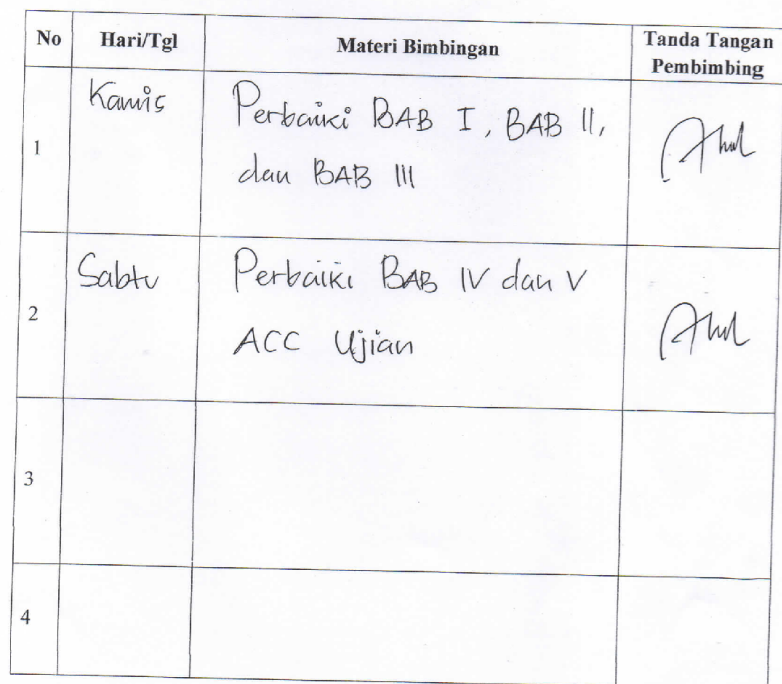 No Hari/Tgl Materi Bimbingan Tanda Tangan
Pembimbing
1 Kamis Perbaiki BAB I, BAB II,
dan BAB III
2 Sabtu Perbaiki BAB IV dan V
ACC Ujian
3
4